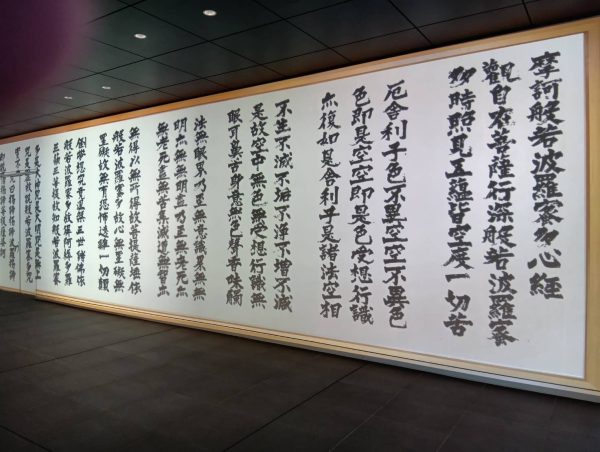 摩訶般若波羅蜜多心経
觀自在菩薩行深般若波羅蜜
多時照見五蘊皆空度一切苦
厄舎利子色不異空空不異色
色即是空空即是色受想行識
亦復如是舎利子是諸法空相
不生不滅不垢不浄不増不減
是故空中無色無受想行識無
眼耳鼻舌身意無色聲香味觸
法無眼界乃至無意識界無無
明亦無無明盡乃至無老死亦
無老死盡無苦集滅道無智亦
無得以無所得故菩提薩埵依
般若波羅蜜多故心無罣礙無
罣礙故無有恐怖遠離一切顛
倒夢想究竟涅槃三世諸佛依
般若波羅蜜多故得阿耨多羅
三藐三菩提故知般若波羅蜜
多是大神咒是大明咒是無上